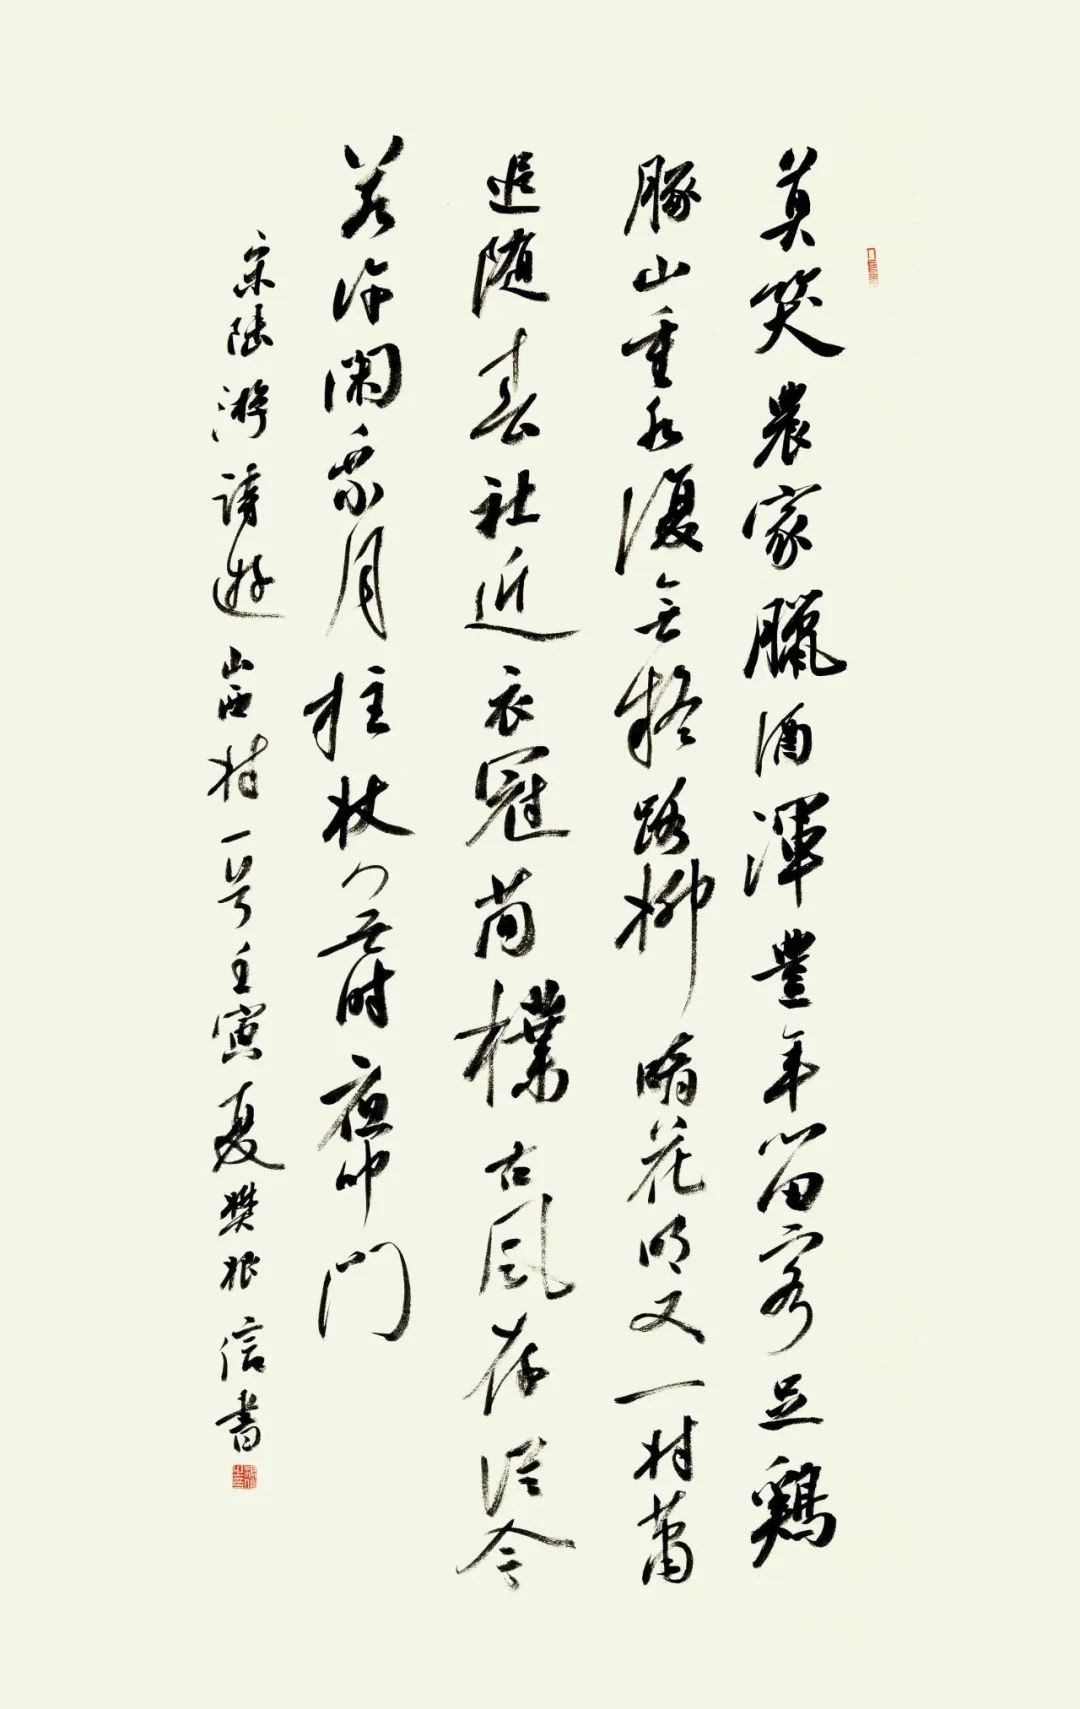 莫笑農家臘酒渾豐年留客足鷄
豚山重水復無疑路柳暗花明又一村蕭
追随春社近衣冠简樸古風存從今
若許閑乘月柱杖無時夜叩門
宋陸游詩遊山西村一首壬寅夏樊根信書